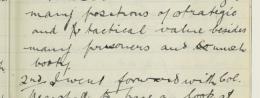 many positions of strategic
and tactical value besides
many prisoners and so much
booty
2nd I went forward with Col.
to have a look at